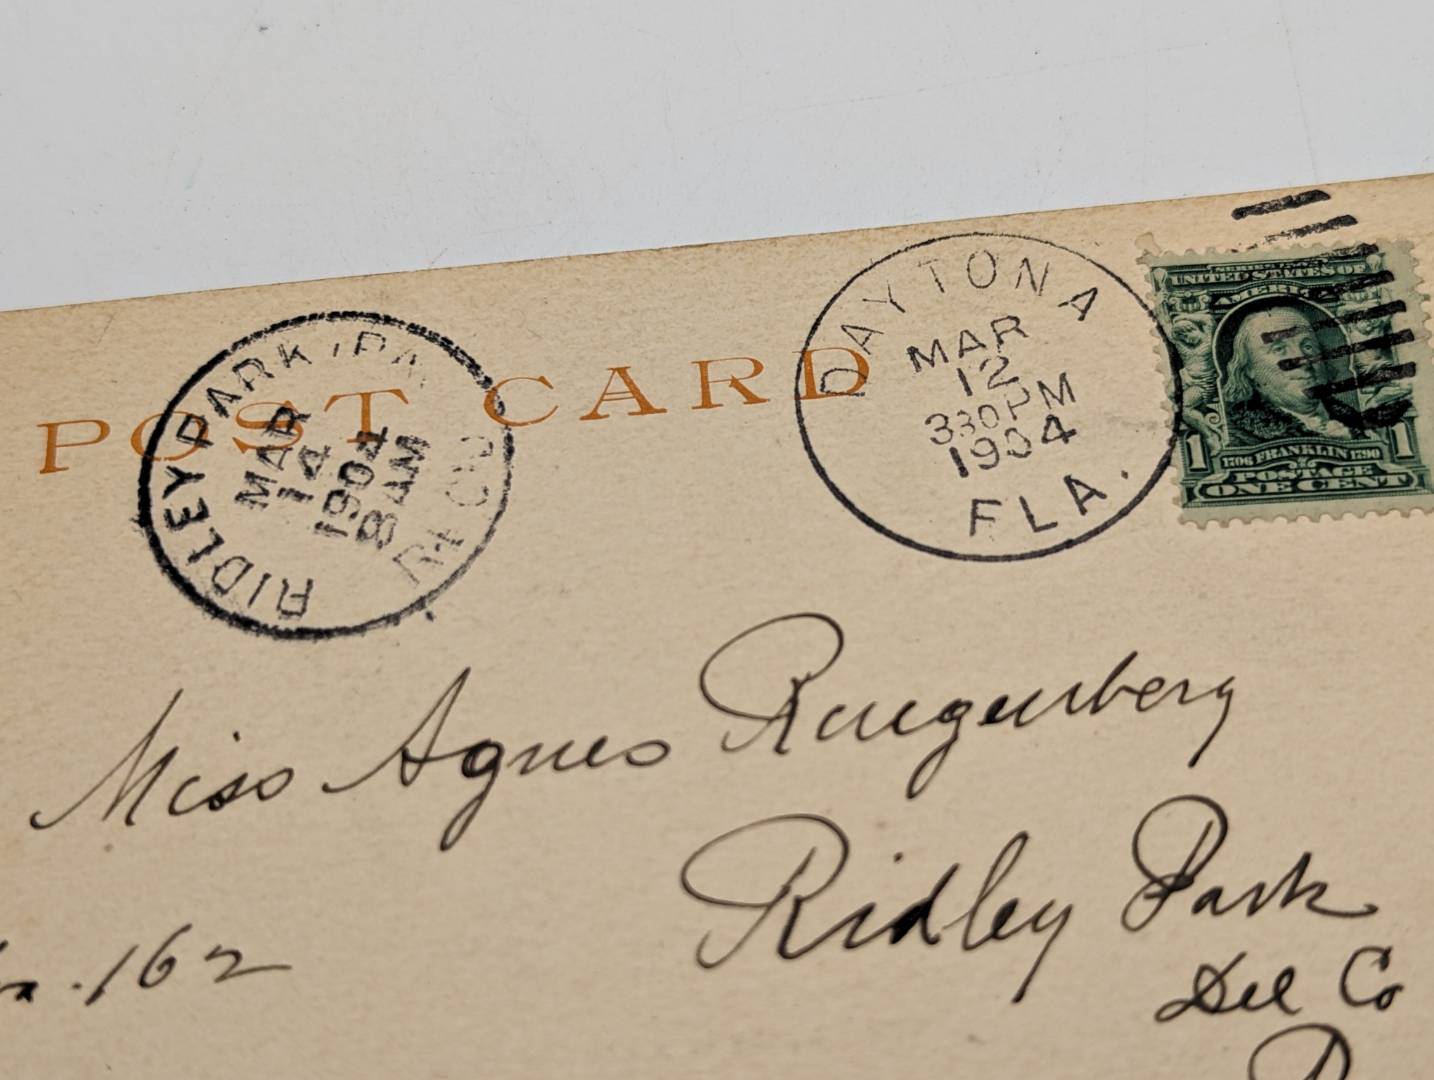 POST CARD
RIDLEY PARK, PA.
MAR
14
1904
8 AM
REC'D
DAYTONA
MAR
12
330 PM
1904
FLA.
SERIES 1902
UNITED STATES OF
AMERICA
1 1
1706 FRANKLIN 1790
POSTAGE
ONE CENT
Miss Agnes
Ridley Park
Del Co
162